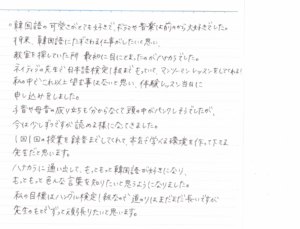 韓国語の可愛さがとても好きで、ドラマや音楽は前から大好きでした。
将来、韓国語にたずされる仕事がしたいと思い、
教室を探していた所 最初に目にとまったのがハナカラでした。
ネイティブの先生で日本語検定1級まで もっていて、マンツーマンレッスンをしてくれる!
私の中でこれ以上望む事はないと思い、体験レッスン当日に
申し込みをしました。
子音や母音の成り立ちも分からなくて頭の中がパンクしそうでしたが、
今は少しずつですが読める様になってきました。
1回1回の授業を録音までしてくれて、本当に学べる環境を作って下さる
先生だと思います。
ハナカラに通い出して、もっともっと韓国語が好きになり、
もっともっと色んな言葉を知りたいと思うようになりました。
私の目標はハングル検定1級なので 道のりはまだまだ長いですが
先生のもとでずっと頑張りたいと思います。